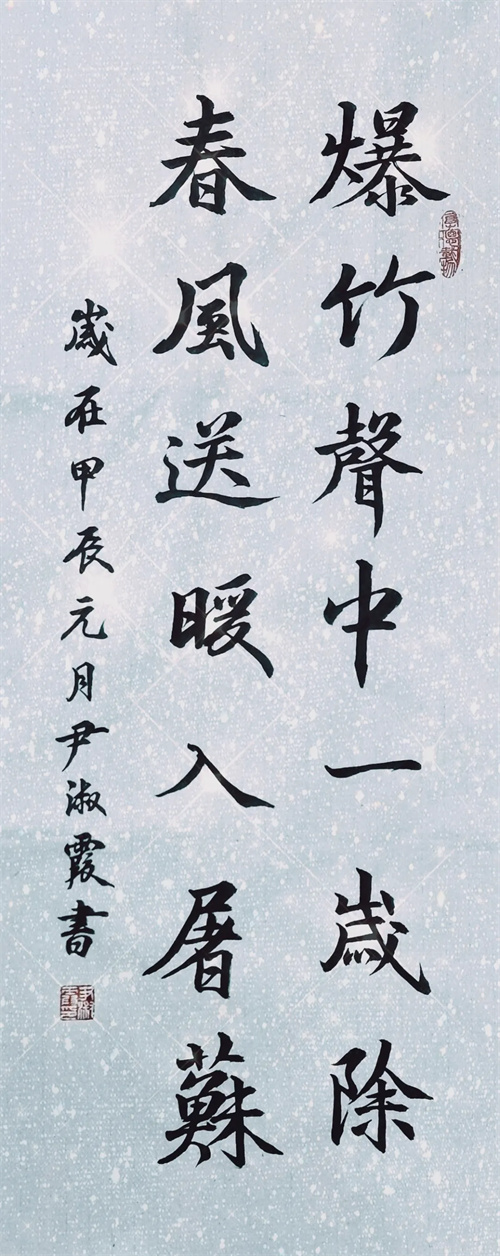 爆竹聲中一歲除
春風送暖入屠蘇
歲在甲辰元月尹淑霞書